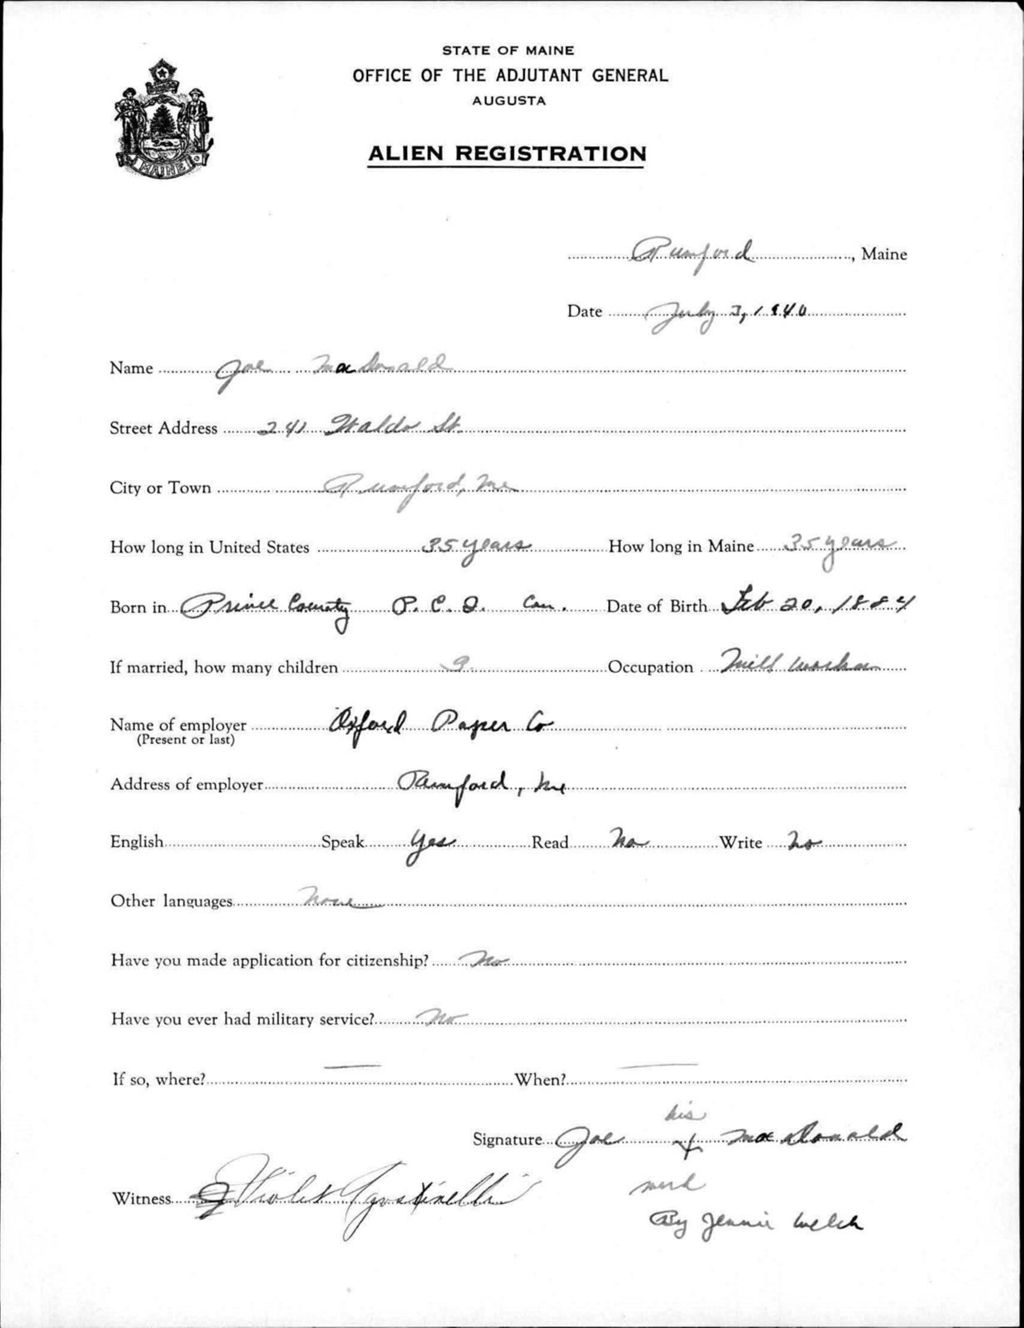 STATE OF MAINE
OFFICE OF THE ADJUTANT GENERAL
AUGUSTA
MAINE
ALIEN REGISTRATION
Rumford, Maine
Date July 3, 1940
Name Joe MacDonald
Street Address 241 Waldo St.
City or Town Rumford, Me
How long in United States 35 years How long in Maine 35 years
Born in Prince County P. E. I. Can. Date of Birth Feb 20, 1884
If married, how many children 9 Occupation Mill worker
Name of employer Oxford Paper Co
(Present or last)
Address of employer Rumford, Me
English Speak Yes Read No Write No
Other languages None
Have you made application for citizenship? No
Have you ever had military service? No
If so, where? — When? —
his
Signature Joe x MacDonald
mark
Witness Violet Agostinelli
By Jennie Welch